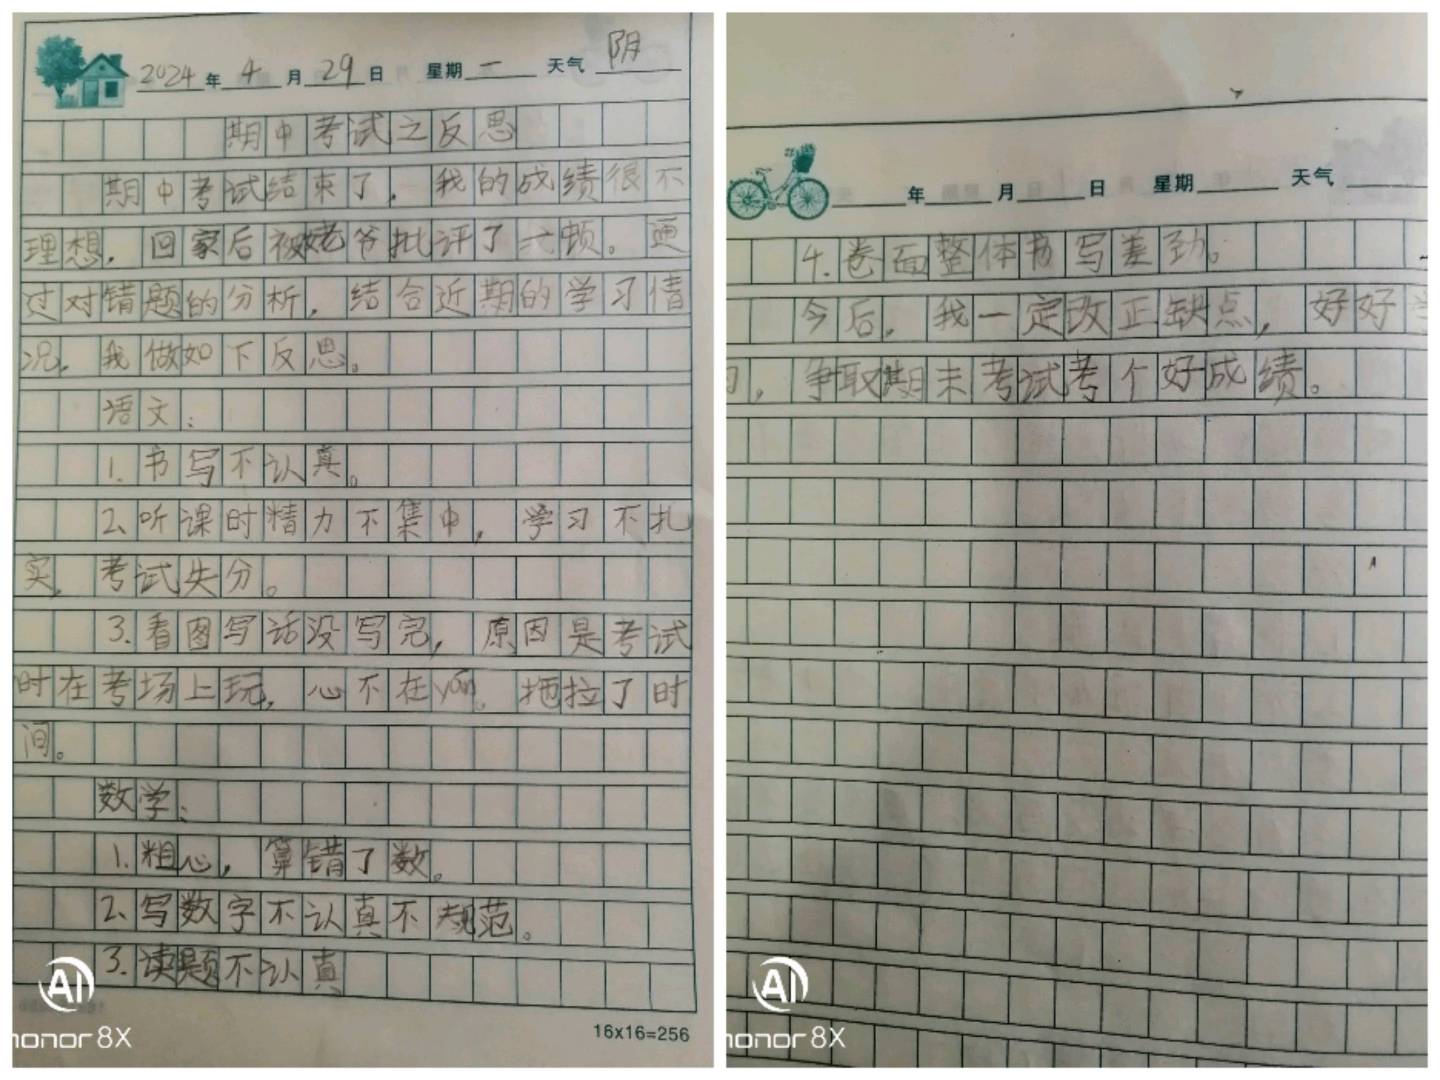 2024年4月29日 星期一 天气阴
期中考试之反思
期中考试结束了，我的成绩很不
理想，回家后被姥爷批评了一顿。通
过对错题的分析，结合近期的学习情
况，我做如下反思。
语文：
1.书写不认真。
2.听课时精力不集中，学习不扎
实，考试失分。
3.看图写话没写完，原因是考试
时在考场上玩，心不在yān。拖拉了时
间。
数学：
1.粗心，算错了数。
2.写数字不认真不规范。
3.读题不认真
16x16=256
AI
honor 8X
年 月 日 星期 天气
4.卷面整体书写差劲。
今后，我一定改正缺点，好好学
习，争取期末考试考个好成绩。
AI
honor 8X